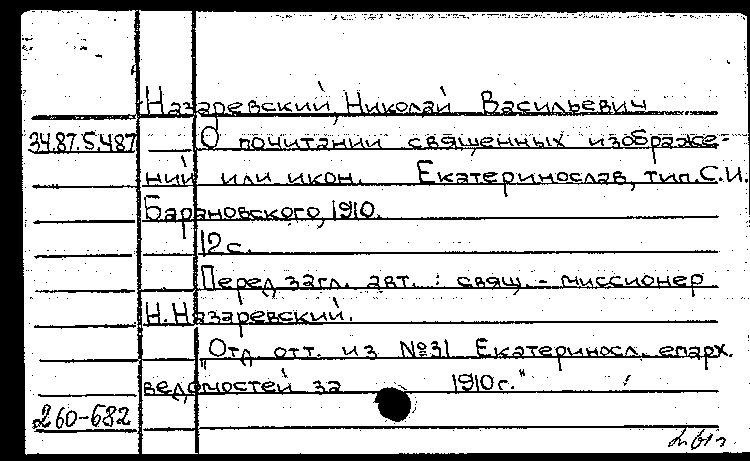 Назаревский, Николай Васильевич
34.87.5.487 О почитании священных изображе-
ний или икон. Екатеринослав, тип. С.И.
Барановского, 1910.
12 с.
Перед загл. авт.: свящ.-миссионер
Н. Назаревский.
"Отд. отт. из №31 Екатериносл. епарх.
ведомостей за 1910 г."
260-682